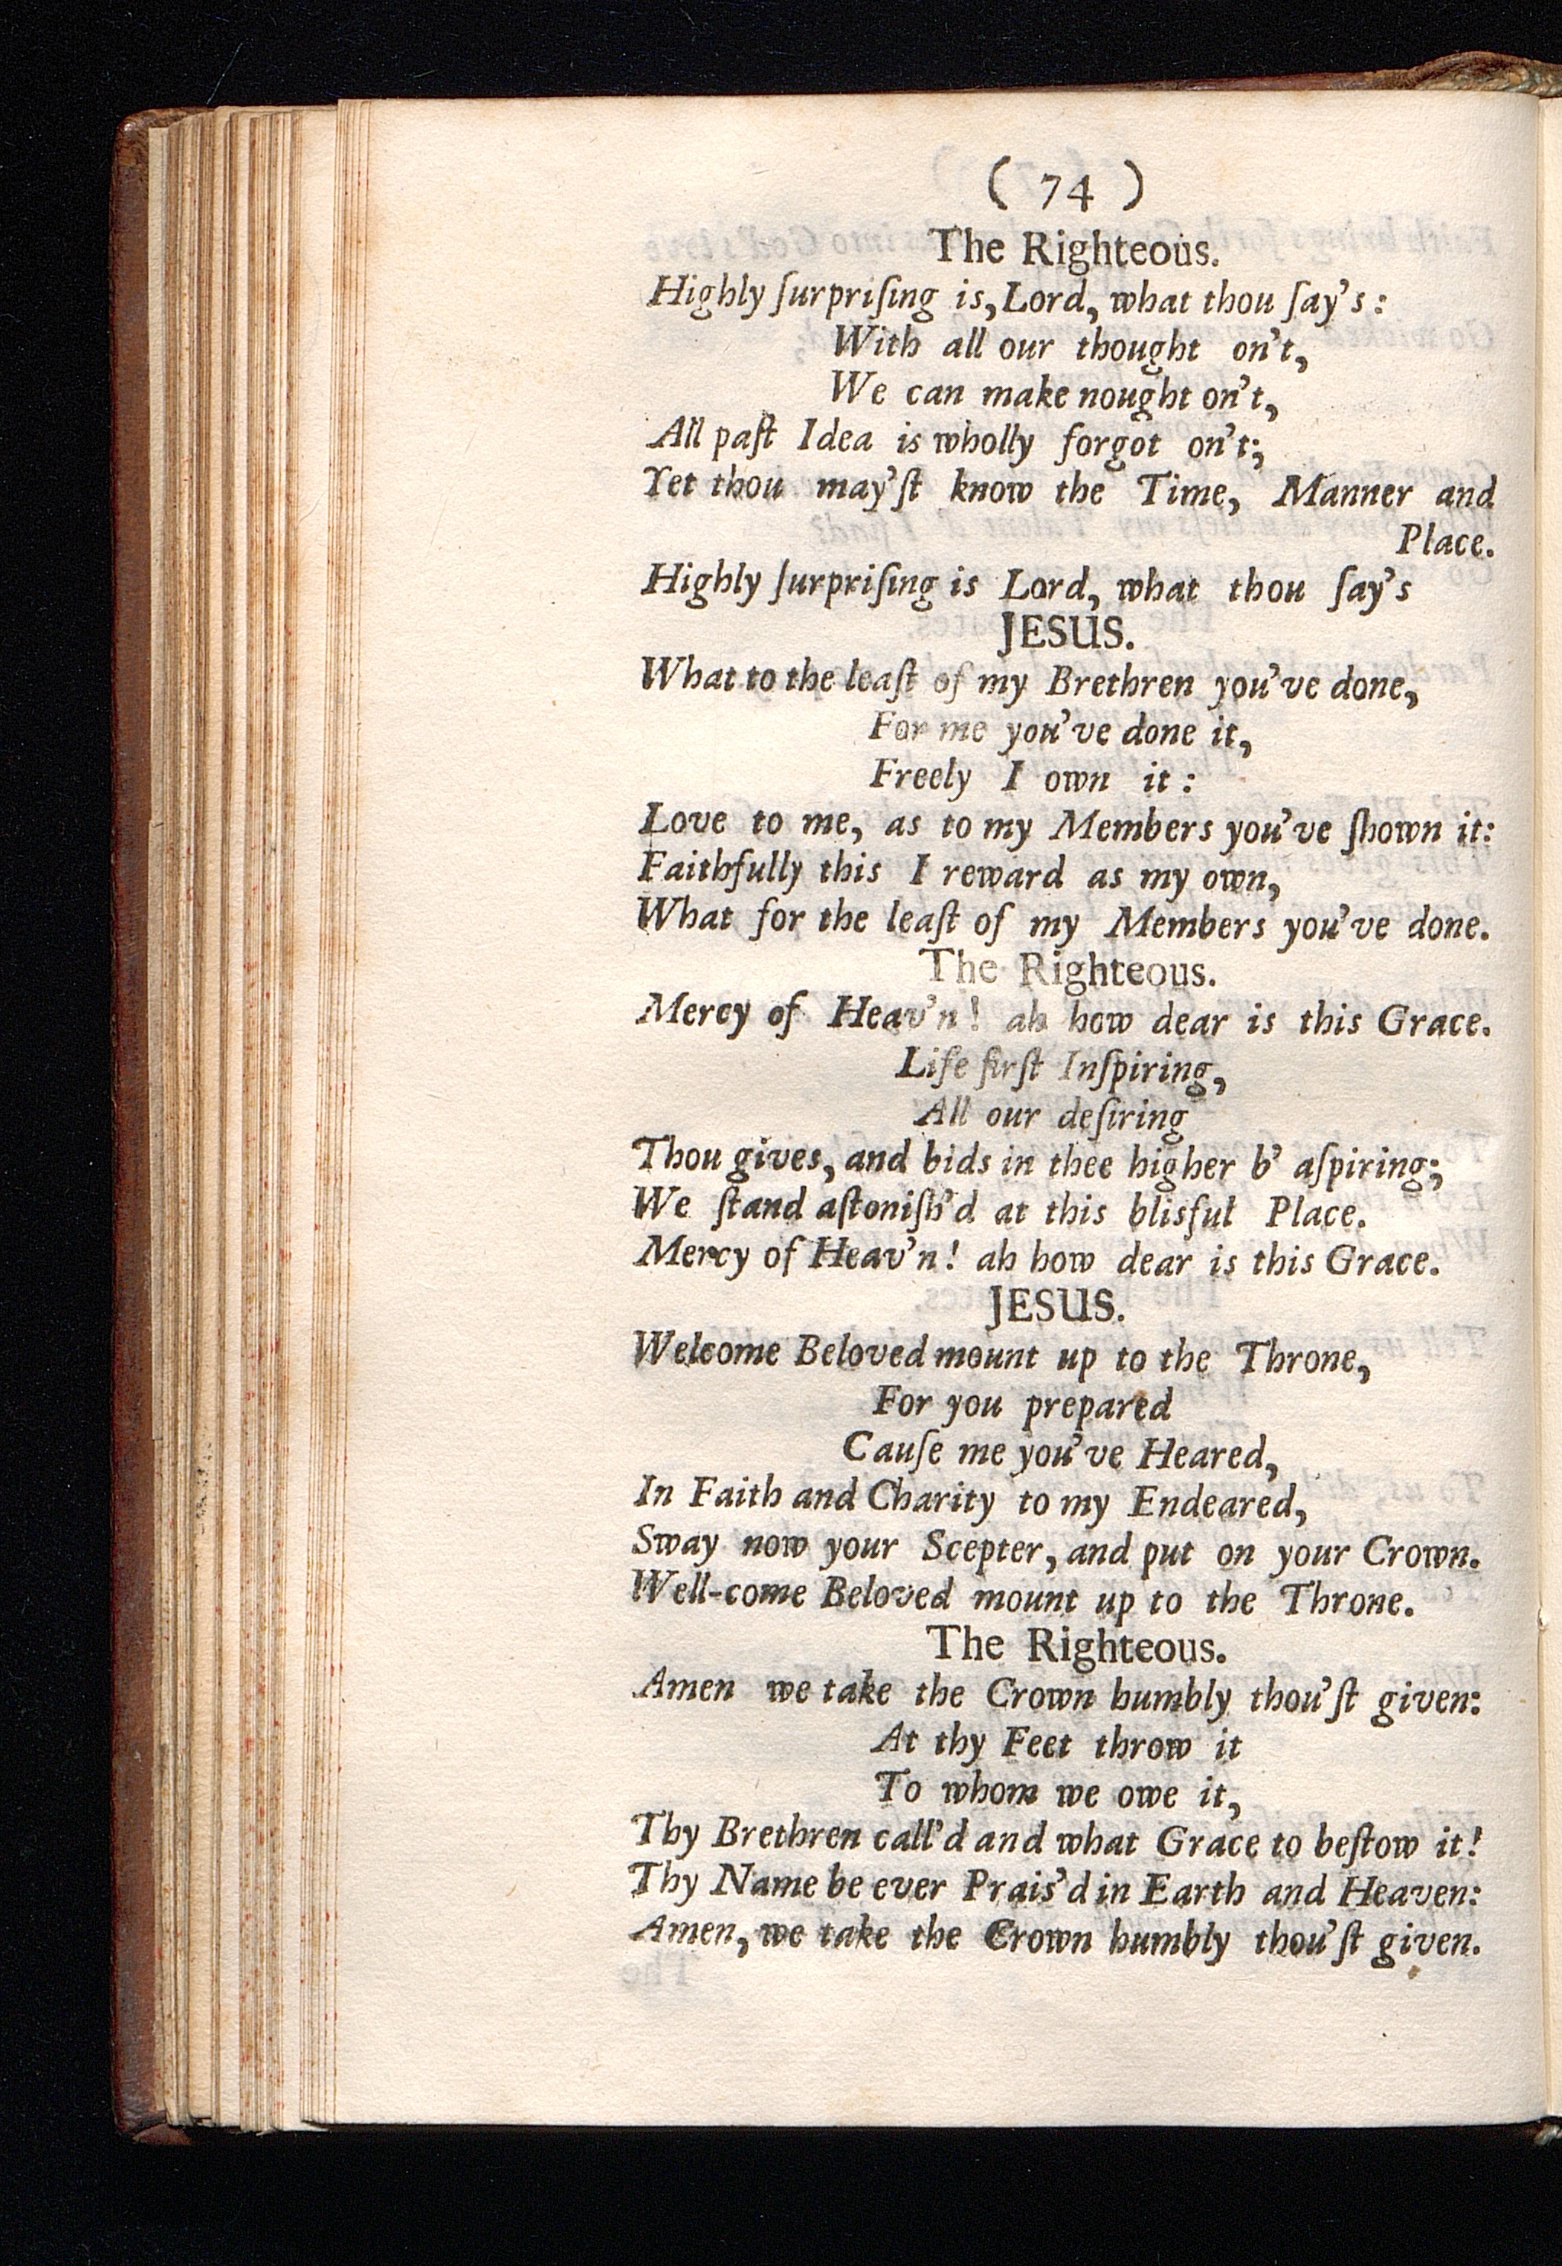 ( 74 )
The Righteous.
Highly ſurpriſing is, Lord, what thou ſay's:
With all our thought on't,
We can make nought on't,
All paſt Idea is wholly forgot on't;
Yet thou may'ſt know the Time, Manner and
Place.
Highly ſurpriſing is Lord, what thou ſay's
JESUS.
What to the leaſt of my Brethren you've done,
For me you've done it,
Freely I own it:
Love to me, as to my Members you've ſhown it:
Faithfully this I reward as my own,
What for the leaſt of my Members you've done.
The Righteous.
Mercy of Heav'n! ah how dear is this Grace.
Life firſt Inſpiring,
All our deſiring
Thou gives, and bids in thee higher b' aſpiring;
We ſtand aſtoniſh'd at this blisful Place.
Mercy of Heav'n! ah how dear is this Grace.
JESUS.
Welcome Beloved mount up to the Throne,
For you prepared
Cauſe me you've Heared,
In Faith and Charity to my Endeared,
Sway now your Scepter, and put on your Crown.
Well-come Beloved mount up to the Throne.
The Righteous.
Amen we take the Crown humbly thou'ſt given:
At thy Feet throw it
To whom we owe it,
Thy Brethren call'd and what Grace to beſtow it!
Thy Name be ever Prais'd in Earth and Heaven:
Amen, we take the Crown humbly thou'ſt given.